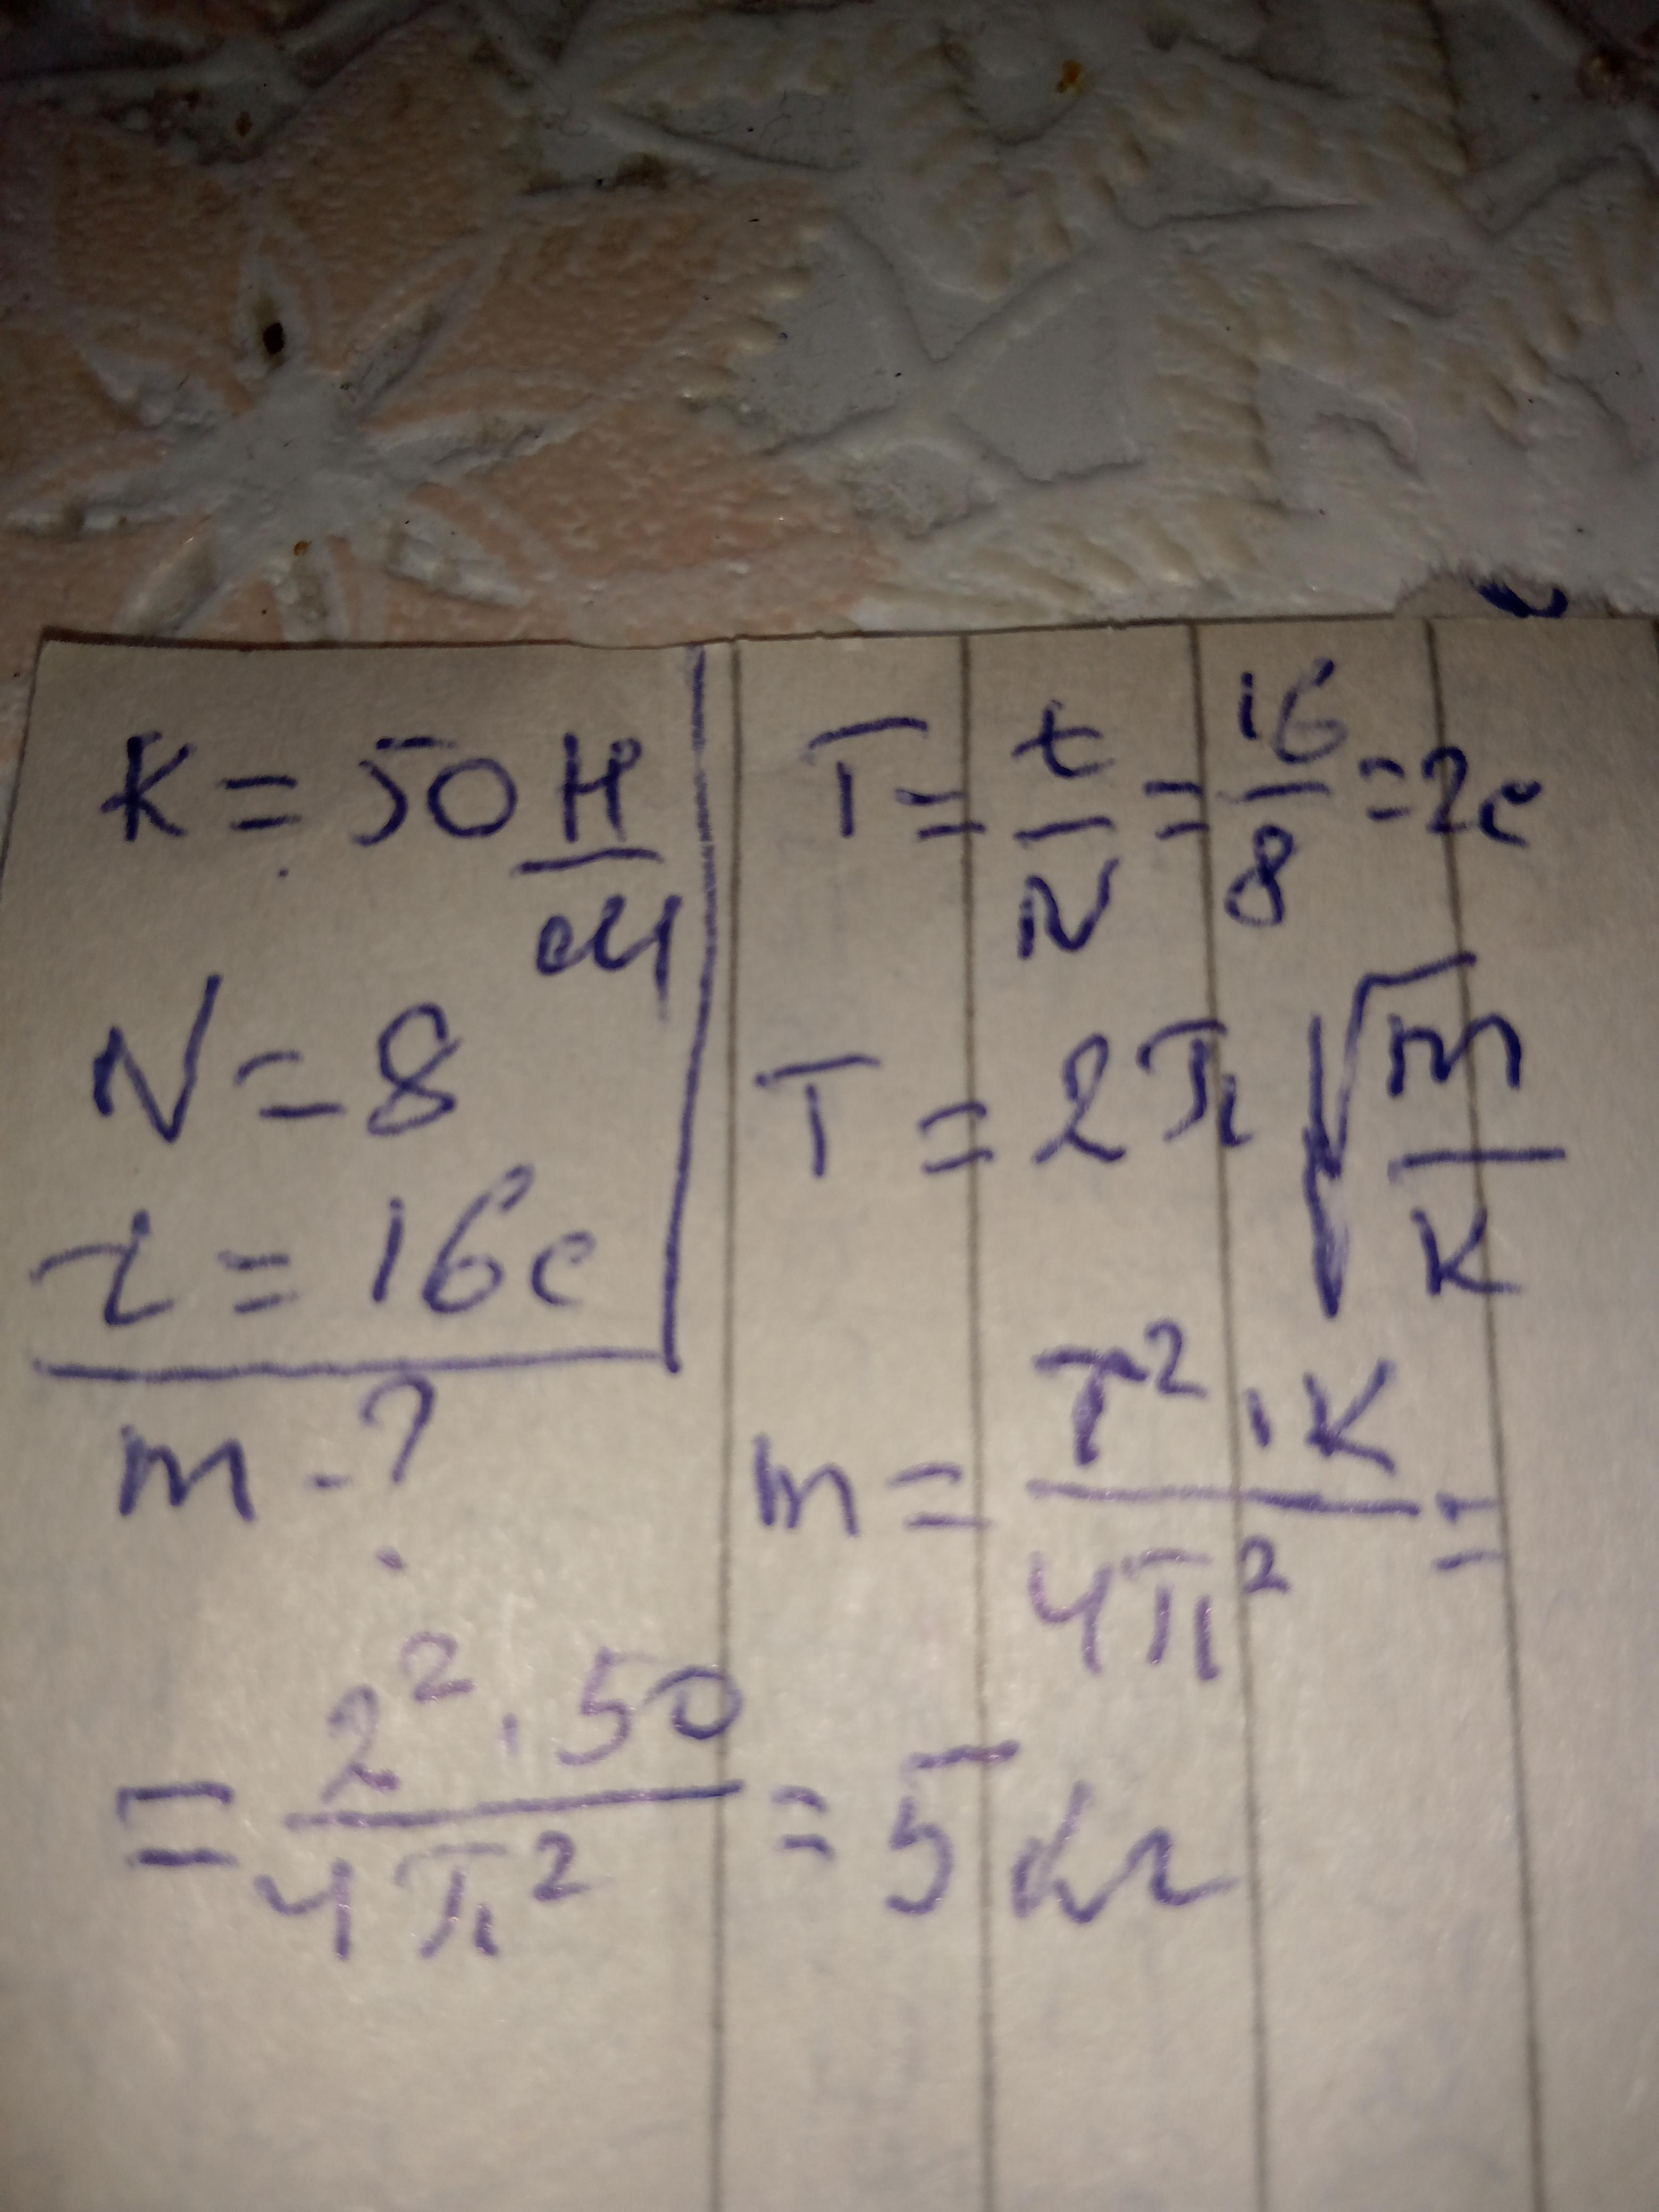 K = 50 Н/м
N = 8
t = 16 с
m - ?
T = t/N = 16/8 = 2с
T = 2π√(m/K)
m = T²·K/4π² =
= 2²·50/4π² = 5 кг